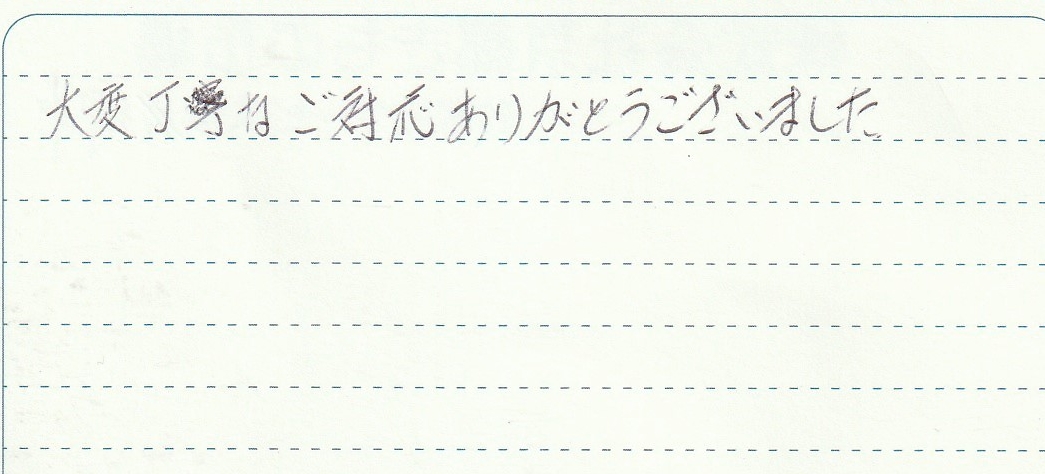 大変丁寧なご対応ありがとうございました